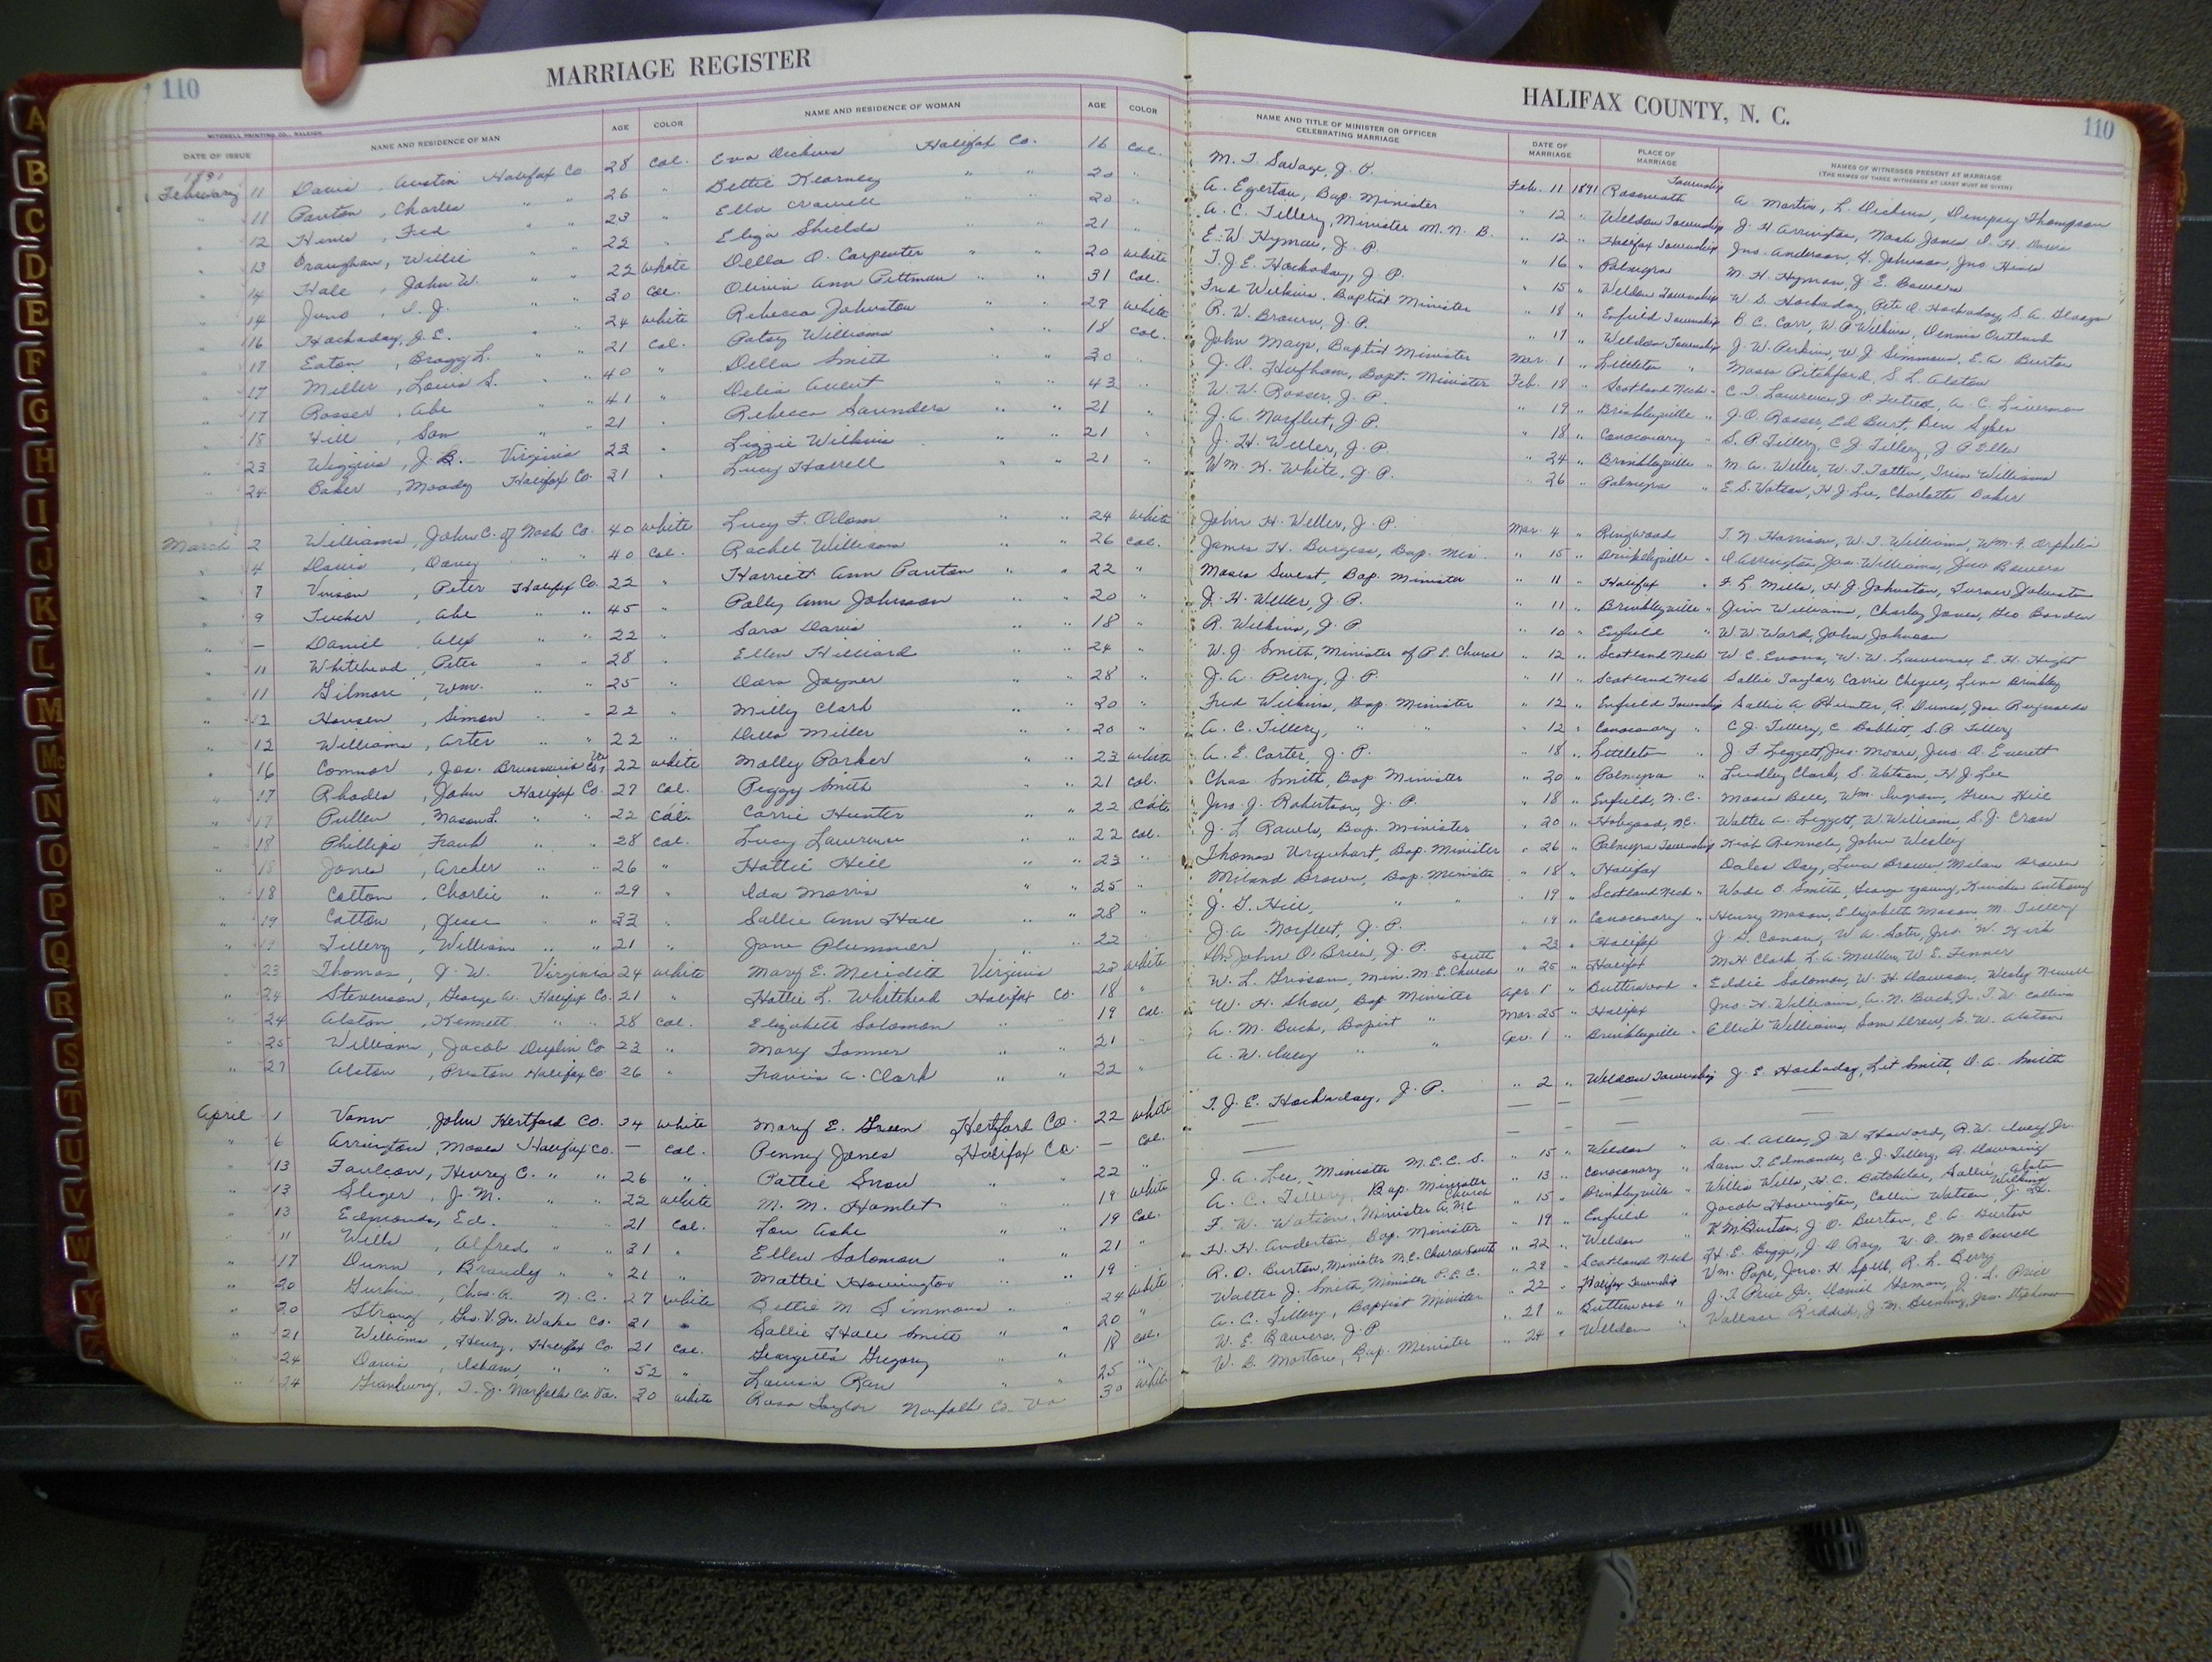 110 MARRIAGE REGISTER HALIFAX COUNTY, N. C. 110
MITCHELL PRINTING CO., RALEIGH
DATE OF ISSUE NAME AND RESIDENCE OF MAN AGE COLOR NAME AND RESIDENCE OF WOMAN AGE COLOR NAME AND TITLE OF MINISTER OR OFFICER CELEBRATING MARRIAGE DATE OF MARRIAGE PLACE OF MARRIAGE NAMES OF WITNESSES PRESENT AT MARRIAGE
(THE NAMES OF THREE WITNESSES AT LEAST MUST BE GIVEN)
1891
February 11 Davis, Austin Halifax Co 28 Col. Eva Dickens Halifax Co. 16 Col. M. T. Savage, J. P. Feb. 11 1891 Township A. Martin, L. Dickens, Dempsey Thompson
" 11 Panton, Charles " " 26 " Bettie Kearney " " 20 " A. Egerton, Bap. Minister " 12 " Weldon Township J. H. Arrington, Nash Jones
" 12 Hines, Fred " " 23 " Ella Crowell 20 " A. C. Tillery, Minister M. N. B. " 12 " Halifax Township Jno. Anderson, Johnson, Jno. Hines
" 13 Draughan, Willie " 22 " Eliza Shields 21 " E. W. Hyman, J. P. " 16 " Palmyra M. H. Hyman, J. E. Bowers
" 14 Hale, John W. " 22 White Della O. Carpenter " " 20 White T. J. E. Hockaday, J. P. " 15 " Weldon Township W. S. Hockaday, Pete O. Hockaday, S. A.
" 14 " " 30 Col. Olivia Ann Pittman " " 31 Col. Fred Wilkins, Baptist Minister " 18 " Enfield Township B. C. Carr, W. P. Wilkins, Dennis Outland
" 16 Hockaday, J. E. " 24 White Rebecca Johnston " " 28 White R. W. Brown, J. P. " 17 " Weldon Township J. W. Perkins, W. J. Simmons, E. A. Burton
" 17 Eaton, Bragg L. " " 21 Col. Patsy Williams " " 18 Col. John Mays, Baptist Minister Mar. 1 " Littleton " Moses Pitchford, S. L. Alston
" 17 Miller, Louis S. " " 40 " Della Smith " " 30 " J. D. Hufham, Bapt. Minister Feb. 18 " Scotland Neck " C. T. Lawrence, J. P. Futrell, A. C. Liverman
" 17 Rosser, Abe " " 41 " Delia Avent " " 43 " W. W. Rosser, J. P. " 19 " Brinkleyville " J. O. Rosser, Ed Burt, Ben Sykes
" 18 Hill, Sam " " 21 " Rebecca Saunders " " 21 " J. A. Norfleet, J. P. " 18 " Conoconary " S. P. Tillery, C. J. Tillery, J. P. Ellen
" 23 Wiggins, J. B. Virginia 23 " Lizzie Wilkins " " 21 " J. H. Weller, J. P. " 24 " Brinkleyville " M. A. Weller, W. T. Williams
" 24 Baker, Moody Halifax Co. 31 " Lucy Harrell " " 21 " Wm. H. White, J. P. " 26 " Palmyra " E. S. Watson, H. J. Lee, Charlotte Baker
March 2 Williams, John C. of Nash Co. 40 White Lucy F. Odom " " 24 White John H. Weller, J. P. Mar. 4 " Ringwood T. N. Harrison, W. T. Williams, Wm. F.
" 4 Davis, Davy " " 40 Col. Rachel Williams " " 26 Col. James H. Burgess, Bap. Min. " 15 " Brinkleyville " O. Arrington, Jas. Williams, Jno. Bowers
" 7 Vinson, Peter Halifax Co. 22 " Harriett Ann Panton " " 22 " Moses Swest, Bap. Minister " 11 " Halifax " F. L. Mills, H. J. Johnston, Turner Johnston
" 9 Tucker, Abe " " 45 " Polly Ann Johnson " " 20 " J. H. Weller, J. P. " 11 " Brinkleyville " Jim Williams, Charley Jones, Geo Borden
" — Daniel, Alex " " 22 " Sara Davis " " 18 " R. Wilkins, J. P. " 10 " Enfield " W. W. Ward, John Johnson
" 11 Whitehead, Peter " " 28 " Ellen Hilliard " " 24 " W. J. Smith, Minister of P. E. Church " 12 " Scotland Neck W. C. Evans, W. W. Lawrence, E. H. Hight
" 11 Gilmore, Wm. " " 25 " Dora Joyner " " 28 " J. A. Perry, J. P. " 11 " Scotland Neck Sallie Taylor, Carrie Cheque, Lena Brinkley
" 12 Housen, Simon " " 22 " Milly Clark " " 30 " Fred Wilkins, Bap. Minister " 12 " Enfield Township Sallie A. Hunter, R. Dunn, Jas. Reynolds
" 12 Williams, Arter " " 22 " Della Miller " " 20 " A. C. Tillery, " " " 12 " Conoconary " C. J. Tillery, C. Babbitt, S. P. Tillery
" 16 Connor, Jos. Brunswick Co., Va 22 White Molly Parker " " 23 White A. E. Carter, J. P. " 18 " Littleton " J. F. Leggett, Jno. Moore, Jno. A. Everett
" 17 Rhodes, John Halifax Co. 27 Col. Peggy Smith " " 21 Col. Chas. Smith, Bap. Minister " 20 " Palmyra " Lindley Clark, S. Watson, H. J. Lee
" 17 Pullen, Mason L. " " 22 Col. Carrie Hunter " " 22 Col. Jno. J. Robertson, J. P. " 18 " Enfield, N.C. Moses Bell, Wm. Ingram, Green Hill
" 18 Phillips, Frank " " 28 Col. Lucy Lawrence " " 22 Col. J. L. Rawls, Bap. Minister " 20 " Hobgood, N.C. Walter A. Leggett, W. Williams, S. J. Cross
" 18 Jones, Archer " " 26 " Hattie Hill " " 23 " Thomas Urquhart, Bap. Minister " 26 " Palmyra Township John Wesley
" 18 Cotton, Charlie " " 29 " Ida Morris " " 25 " Miland Brown, Bap. Minister " 18 " Halifax Dales Day, Brown, Milan Brown
" 19 Cotton, Jesse " " 33 " Sallie Ann Hall " " 28 " J. G. Hill, " " " 19 " Scotland Neck " Wade B. Smith, George Young, Anthony
" 19 Tillery, William " " 21 " Jane Plummer " " 22 J. A. Norfleet, J. P. " 19 " Conoconary " Henry Mason, Elizabeth Mason, M. Tillery
" 23 Thomas, J. W. Virginia 24 White Mary E. Meridith Virginia 23 White John O'Brien, J. P. " 23 " Halifax J. G. Conan, W. A.
" 24 Stevenson, George A. Halifax Co. 21 " Hattie L. Whitehead Halifax Co. 18 " W. L. Grissom, Min. M. E. Church South " 25 " Halifax M. H. Clark, L. A. Mullen, W. E. Fenner
" 24 Alston, Kennett " " 28 Col. Elizabeth Solomon " " 19 Col. W. H. Shaw, Bap Minister Apr. 1 " Butterwood " Eddie Solomon, W. H. Dawson, Wesley Newell
" 25 Williams, Jacob Duplin Co 23 " Mary Tanner " " 21 " A. M. Buck, Baptist " Mar. 25 " Halifax Jno. H. Williams, A. N. Buck, Jr., T. W. Collins
" 27 Alston, Preston Halifax Co 26 " Francis A. Clark " " 22 " A. W. Ivey " " Apr. 1 " Brinkleyville " Williams, Sam Drew, G. W. Alston
April 1 Vann, John Hertford Co. 34 White Mary E. Green Hertford Co. 22 White T. J. E. Hockaday, J. P. " 2 " Weldon Township J. E. Hockaday, Lit Smith, O. A. Smith
" 6 Arrington, Moses Halifax Co. — Col. Penny Jones Halifax Co. — Col. — — — — —
" 13 Faulcon, Henry C. " " 26 " Pattie Snow " " 22 " — — — — —
" 13 Sliger, J. M. " " 22 White M. M. Hamlet " 19 White J. A. Lee, Minister M. E. C. S. " 15 " Weldon " A. S. Allen, J. W. Howard, R. W. Ivey Jr.
" 13 Edmonds, Ed. 21 Col. Lou Ashe " 19 Col. A. C. Tillery, Bap. Minister " 13 " Conoconary " Sam T. Edmonds, C. J. Tillery, A. Downing
" 11 Wills, Alfred " " 31 " Ellen Solomon " " 21 " F. W. Watson, Minister A.M.E. Church " 15 " Brinkleyville " Willis Wells, H. C. Batchelor, Sallie Alston
" 17 Dunn, Brandy " " 21 " Mattie Howington " " 19 " H. H. Anderton, Bap. Minister " 19 " Enfield " Jacob Howington, Collin Watson, J. H. Wilkins
" 20 Gurkin, Chas. A. N. C. 27 White Bettie M. Simmons " 24 White R. O. Burton, Minister M.E. Church South " 22 " Weldon " R. M. Burton, J. O. Burton, E. A. Burton
" 20 Strong, Geo. V. Jr. Wake Co. 31 " Sallie Hall Smith " " 20 " Walter J. Smith, Minister P.E.C. " 28 " Scotland Neck H. E. Biggs, J. D. Ray, W. O. McDowell
" 21 Williams, Henry, Halifax Co. 21 Col. Georgetta Gregory " " 18 Col. A. C. Tillery, Baptist Minister " 22 " Halifax Township Wm. Pope, Jno. H. Spell, R. L. Berry
" 24 Davis, Isham, " " 52 " Louisa Ran " " 25 " W. E. Bowers, J. P. " 27 " Butterwood " J. T. Price Jr., Daniel Harmon, J. L. Price
" 24 Granbury, T. J. Norfolk Co. Va. 30 White Rosa Taylor Norfolk Co. Va 30 White W. B. Morton, Bap. Minister " 24 " Weldon " Wallace Riddick, J. M. Jno. Stephenson
A
B
C
D
E
F
G
H
I
J
K
L
M
Mc
N
O
P
Q
R
S
T
U
V
W
Y
Z